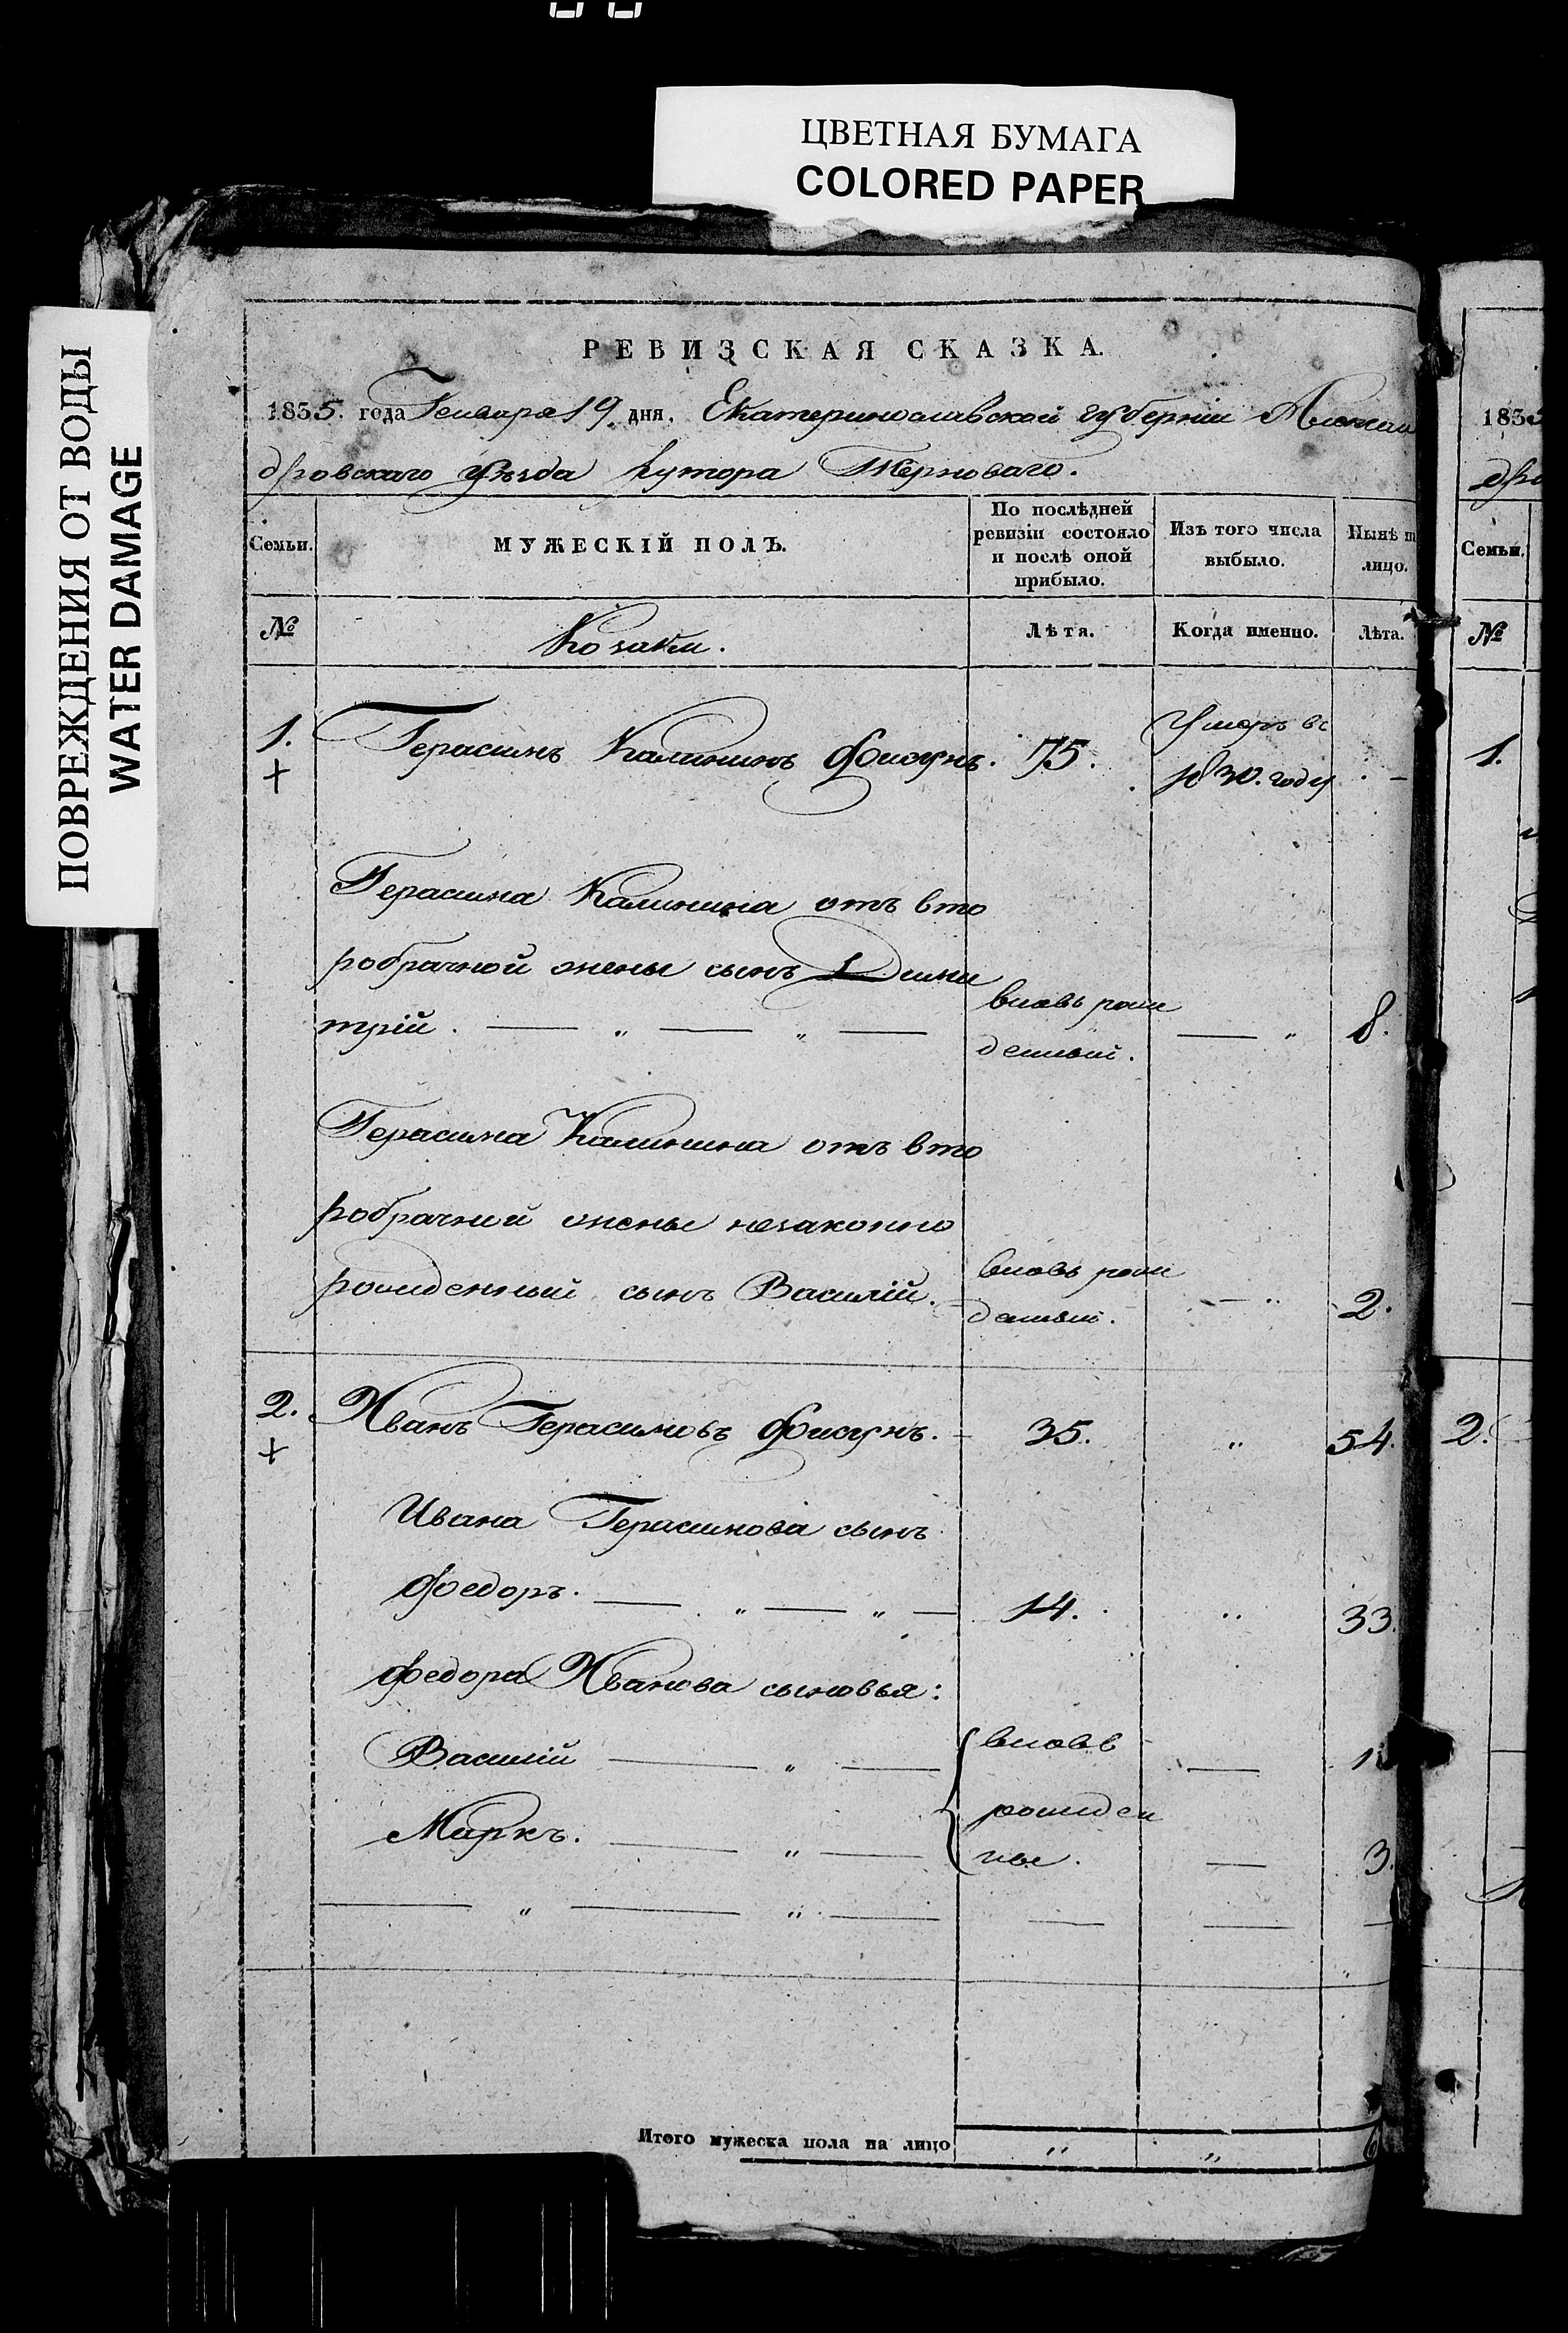 ЦВЕТНАЯ БУМАГА
COLORED PAPER
ПОВРЕЖДЕНИЯ ОТ ВОДЫ
WATER DAMAGE
РЕВИЗСКАЯ СКАЗКА.
1835. года Генваря 19 дня. Екатеринославской губернiи Алексан
дровскаго уѣзда хутора Терноваго.
Семьи. МУЖЕСКІЙ ПОЛЪ. По послѣдней ревизіи состояло и послѣ оной прибыло. Изъ того числа выбыло. Нынѣ на лицо.
№ Козаки. Лѣта. Когда именно. Лѣта.
1. Герасимъ Калининъ Фисунъ. 75. Умеръ въ
1830. году
Герасима Калинина отъ вто
робрачной жены сынъ Дими
трій. вновь рож
денный. 8.
Герасима Калинина отъ вто
робрачной жены незаконно
рожденный сынъ Василій. вновь рож
денный. 2.
2. Иванъ Герасимовъ Фисунъ. 35. 54.
Ивана Герасимова сынъ
Федоръ. 14. 33.
Федора Иванова сыновья:
Василій вновь
Маркъ. рожден
ные. 3.
Итого мужеска пола на лицо 6
183
дро
Семьи.
№
1.
2.